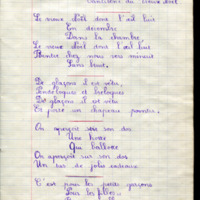 Le vieux
En décembre
Dans la chambre
Le vieux dont l'œil luit
chez nous vers minuit
Sans bruit.
De glaçons il est vêtu
Pendeloques et breloques
De glaçons il est vêtu
Il porte un chapeau pointu.
On aperçoit sur son dos
Une hotte
Qui ballotte
On aperçoit sur son dos
Un tas de jolis cadeaux
C'est pour les petits garçons
Pour les filles